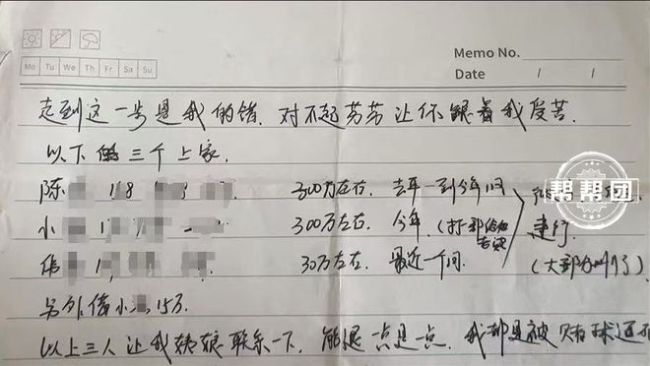 Mo Tu We Th Fr Sa Su
Memo No.
Date / /
走到这一步是我的错.对不起芳芳让你跟着我受苦.
以下 三个上家.
陈 118 300万左右. 去年一到今年间
小 1 300万左右. 今年.(打
伟 1 30万左右. 最近一个间.
建行.
(大部分删了)
另外借小 15万.
以上三人让我姨娘联系一下.能退一点是一点.我都是被赌球还
帮帮团